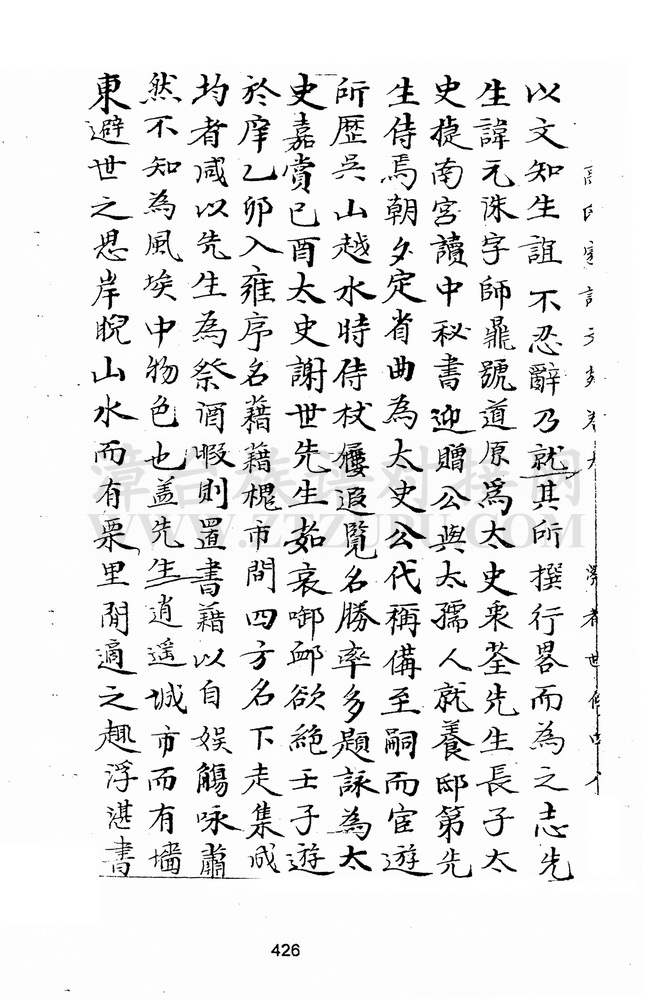 以文知生誼不忍辭乃就其所撰行畧而為之志先
生諱元洙字師鼎號道原爲太史乘荃先生長子太
史捷南宮讀中秘書迎贈公與太孺人就養邸第先
生侍焉朝夕定省曲為太史公代稱備至嗣而宦遊
所歷吳山越水時侍杖屨遐覽名勝率多題詠為太
史嘉賞己酉太史謝世先生茹哀啣䘏欲絶壬子遊
於庠乙卯入雍序名藉藉槐市間四方名下走集成
均者咸以先生為祭酒暇則置書藉以自娱觴咏蕭
然不知為風埃中物色也盖先生逍遥城市而有墻
東避世之思岸睨山水而有栗里閒適之趣浮湛書
漳台族譜对接网
WWW.ZTZUPU.COM
426